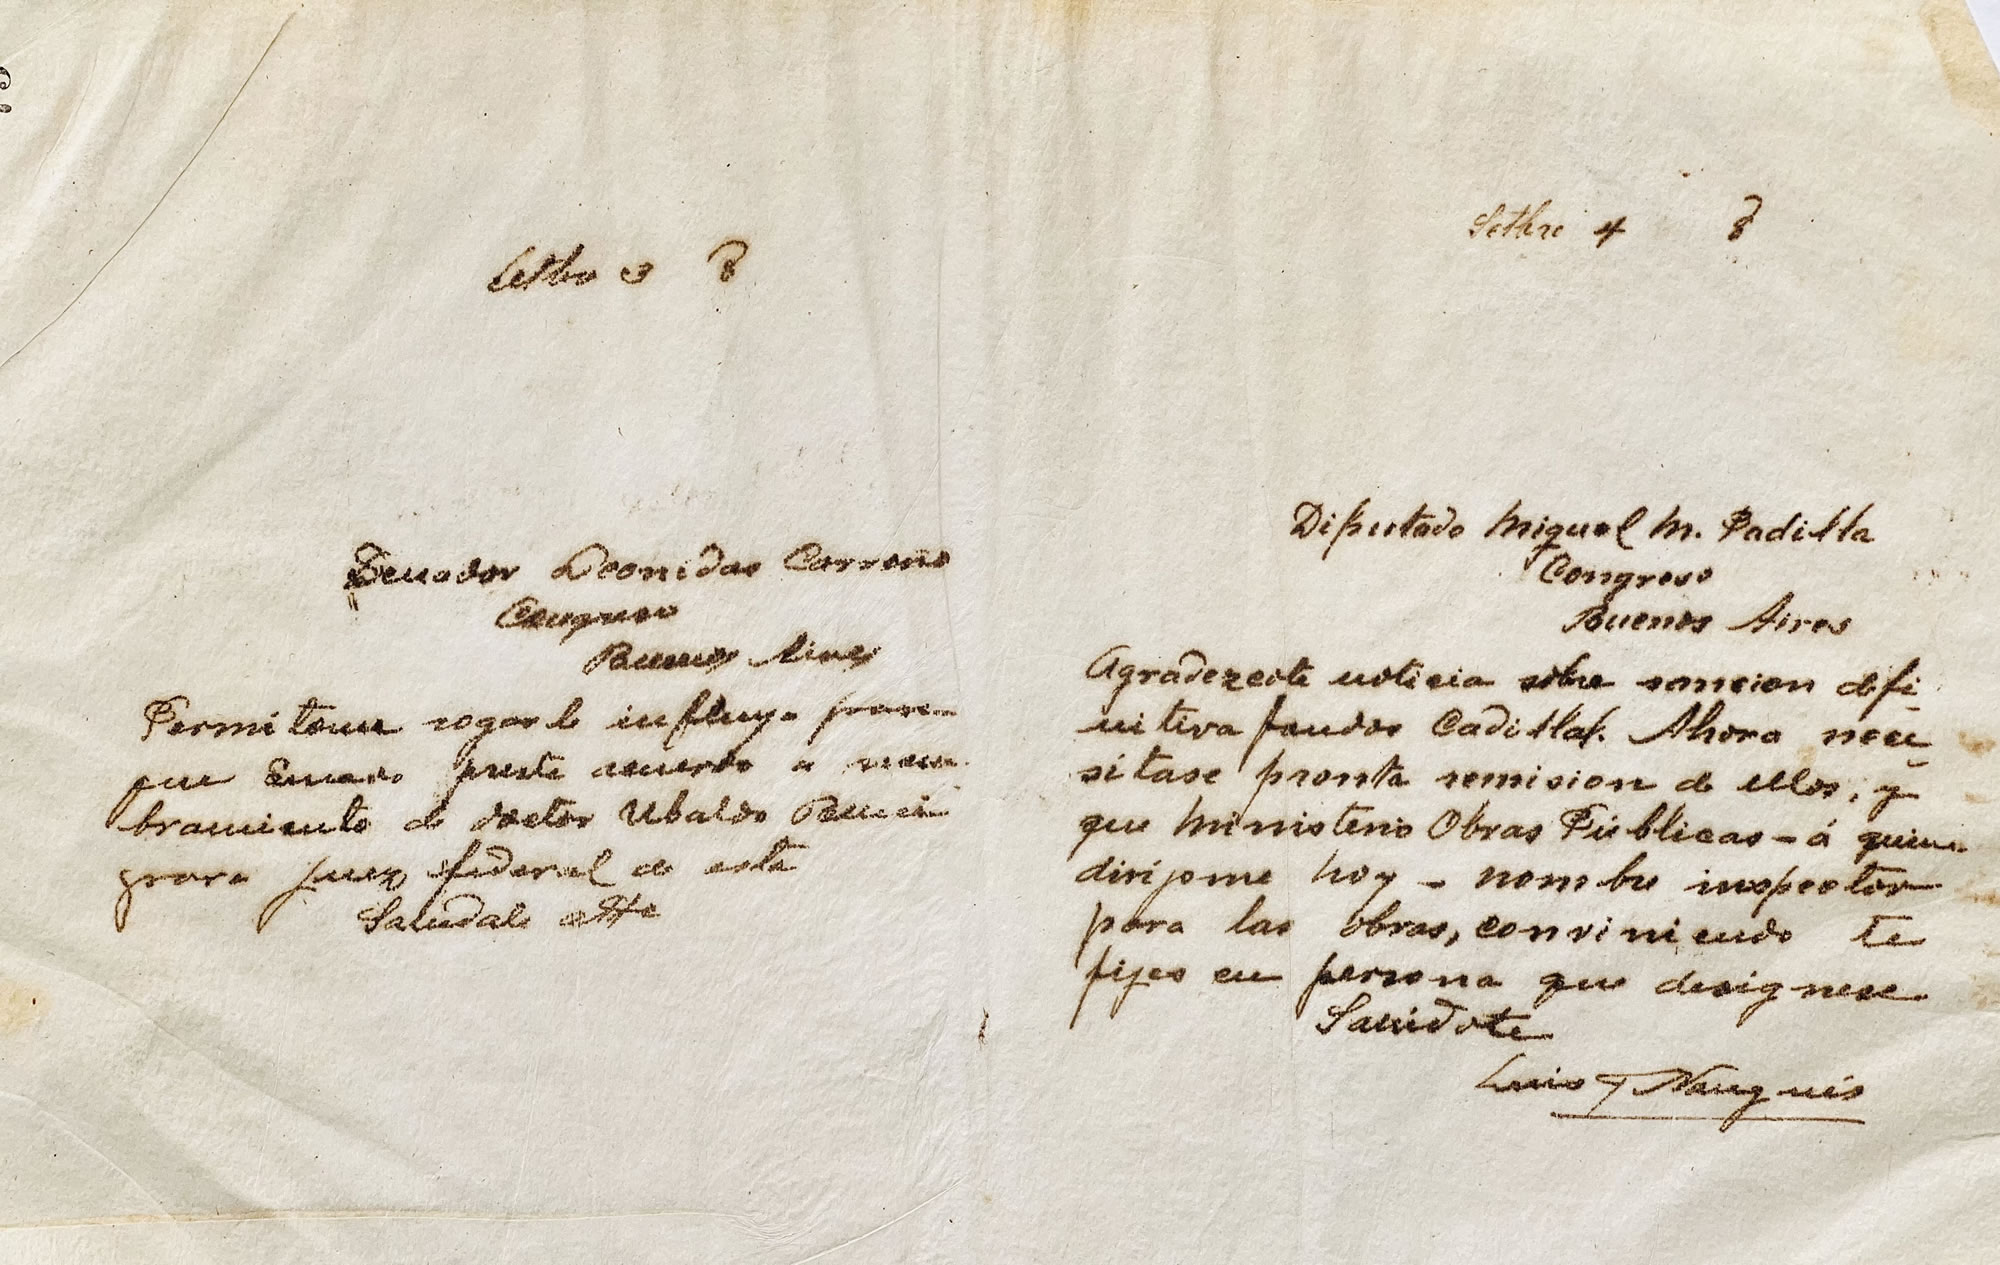 Setbre 3 8
Senador Leonidas Carreño
Congreso
Buenos Aires
Permitome rogarle influya para
que Senado preste acuerdo a nom-
bramiento de doctor Ubaldo Benci
juez federal de esta
Saludale atte
Setbre 4 8
Diputado Miguel M. Padilla
Congreso
Buenos Aires
Agradezcote noticia sobre sancion defi-
nitiva fondos Cadillal. Ahora nece-
sitase pronta remision de ellos, y
que Ministerio Obras Públicas - á quien
dirijome hoy - nombre inspector
para las obras, conviniendo te
fijes en persona que designese
Saludote
Luis F Nougués